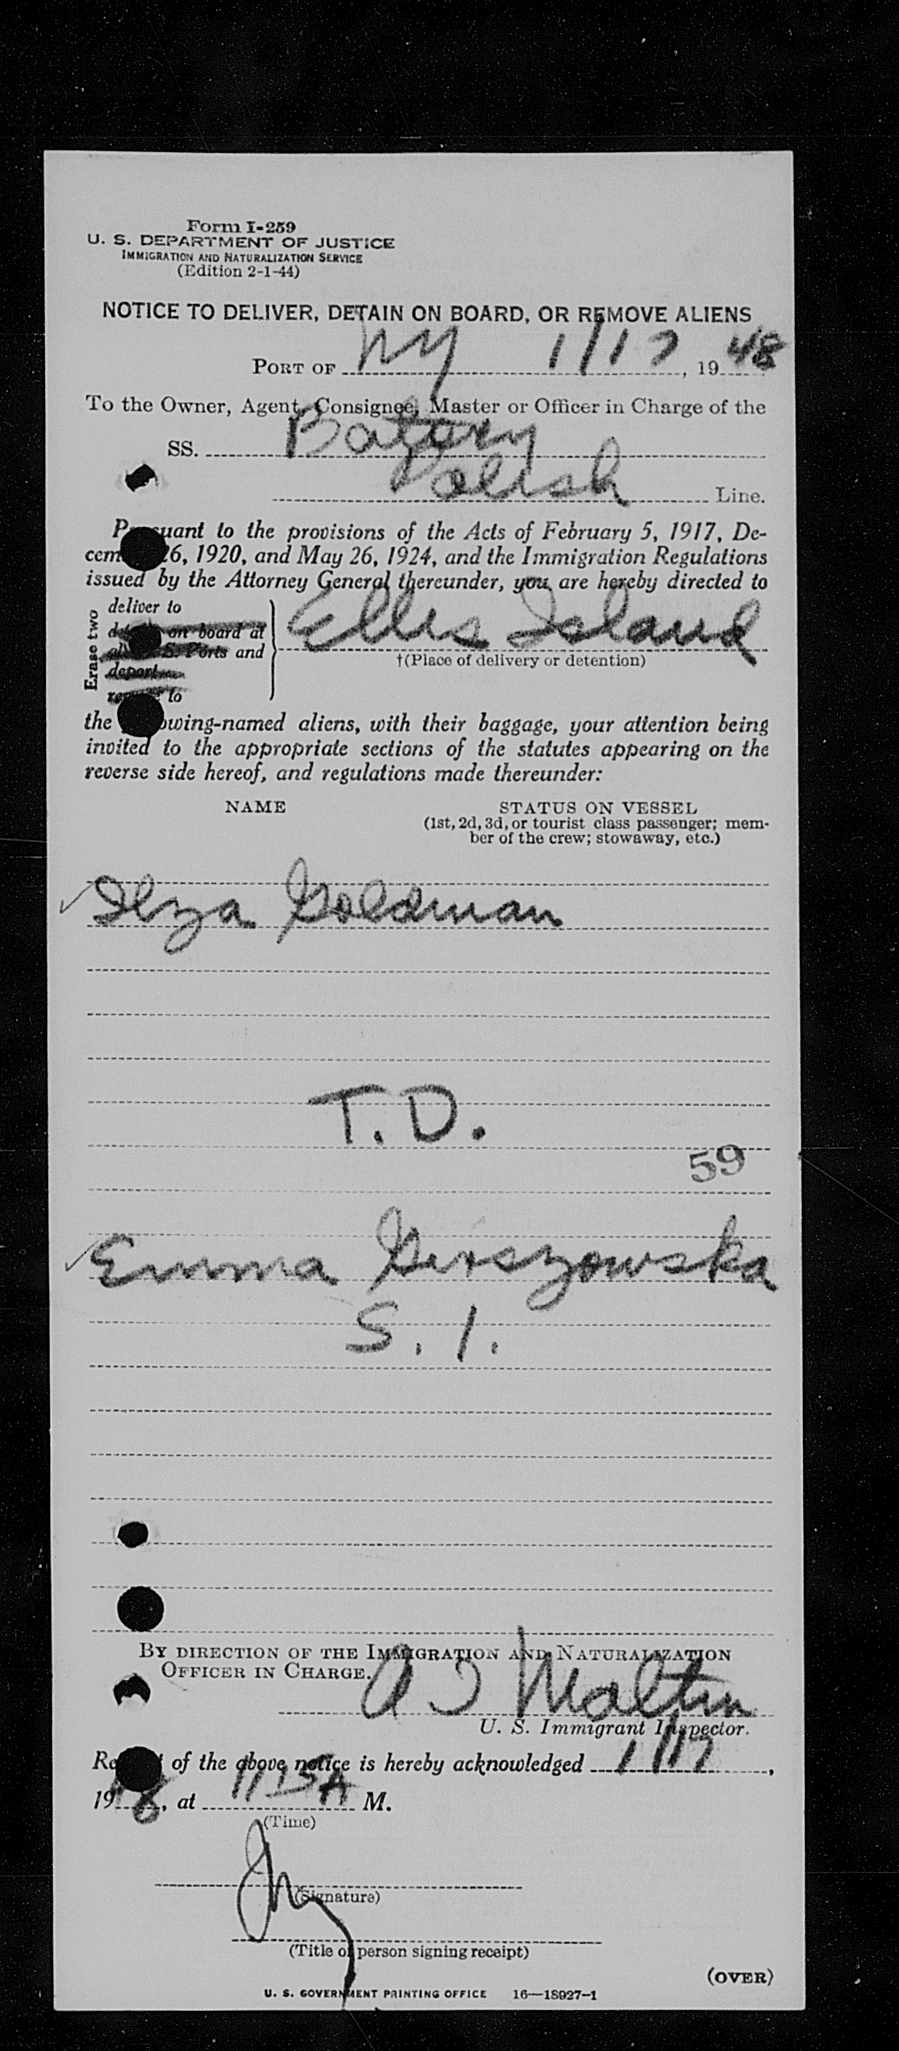 Form I-259
U. S. DEPARTMENT OF JUSTICE
IMMIGRATION AND NATURALIZATION SERVICE
(Edition 2-1-44)
NOTICE TO DELIVER, DETAIN ON BOARD, OR REMOVE ALIENS
PORT OF NY 1/17, 1948
To the Owner, Agent, Consignee, Master or Officer in Charge of the
SS. Batory
Polish Line.
Pursuant to the provisions of the Acts of February 5, 1917, De-
cem 26, 1920, and May 26, 1924, and the Immigration Regulations
issued by the Attorney General thereunder, you are hereby directed to
Erase two
deliver to
on board at
S. Ports and
deport
to
Ellis Island
†(Place of delivery or detention)
the following-named aliens, with their baggage, your attention being
invited to the appropriate sections of the statutes appearing on the
reverse side hereof, and regulations made thereunder:
NAME STATUS ON VESSEL
(1st, 2d, 3d, or tourist class passenger; mem-
ber of the crew; stowaway, etc.)
Ilza Goldman
T.D.
59
Emma Gerszowska
S.I.
BY DIRECTION OF THE IMMIGRATION AND NATURALIZATION
OFFICER IN CHARGE.
U. S. Immigrant Inspector.
Receipt of the above notice is hereby acknowledged 1/17,
1948, at 1115A M.
(Time)
(Signature)
(Title of person signing receipt)
(OVER)
U. S. GOVERNMENT PRINTING OFFICE 16—18927-1